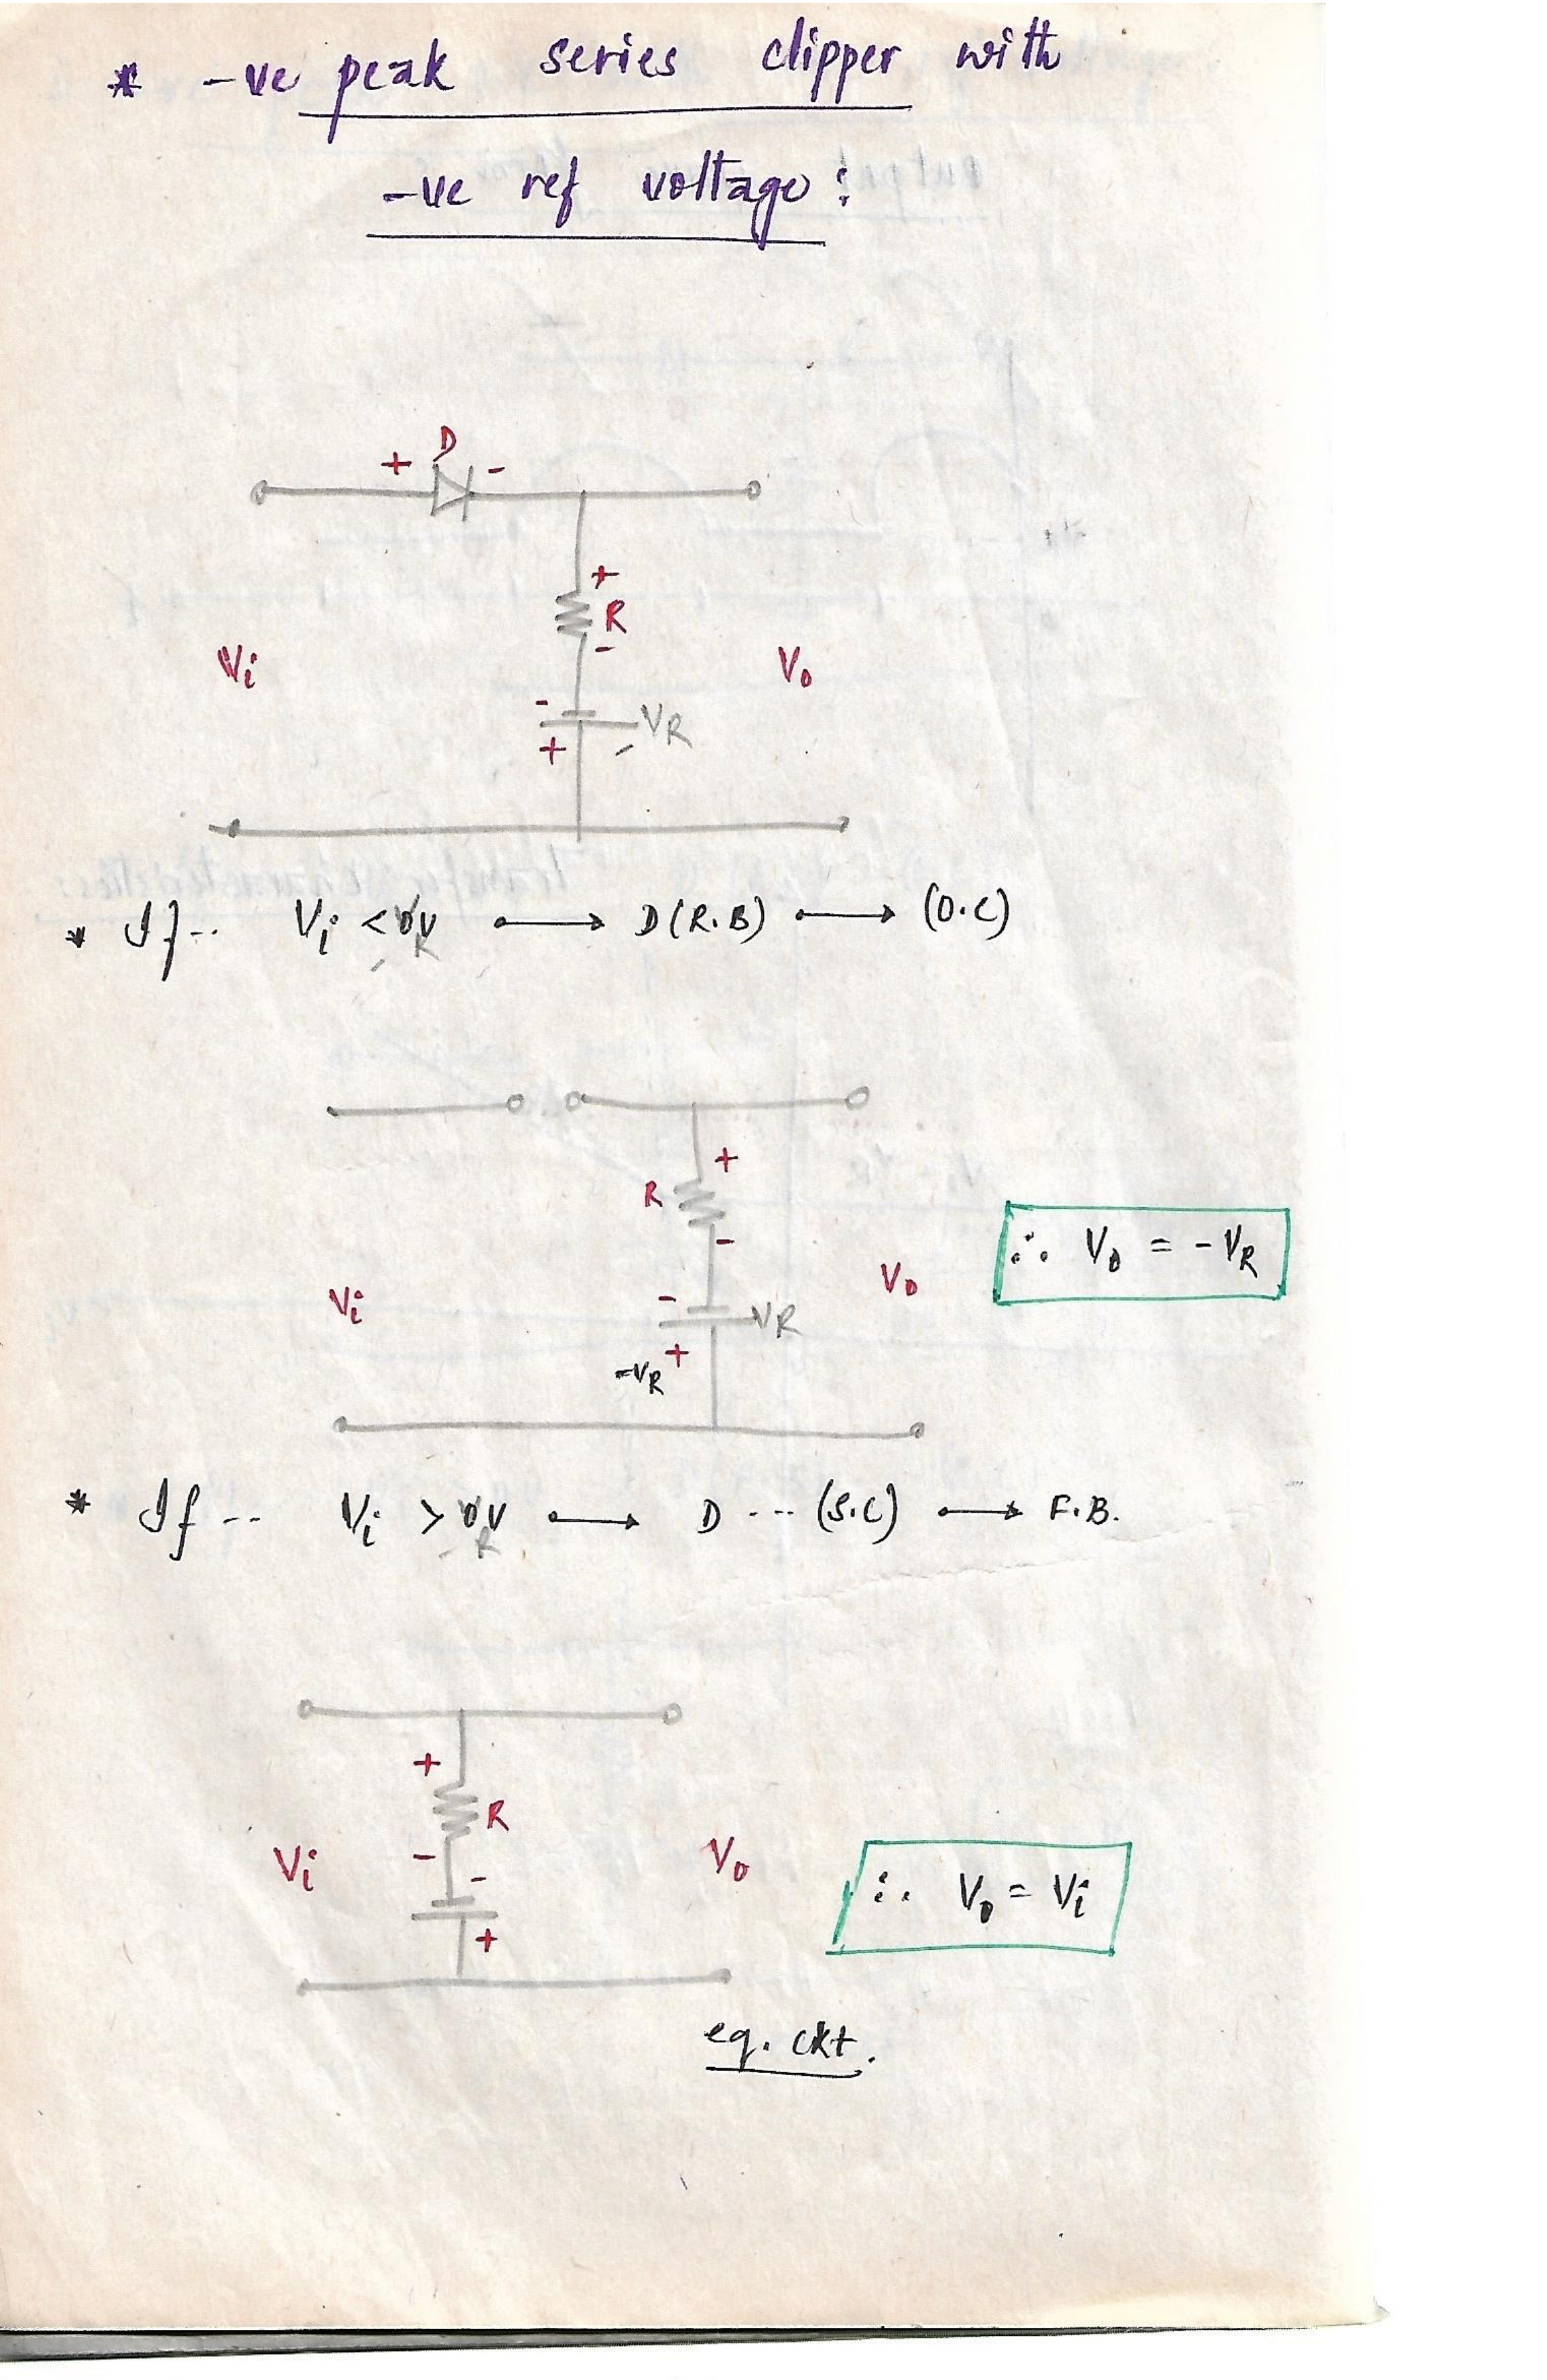 * -ve peak series clipper with
-ve ref voltage :
D
+ -
+
R
-
Vi
Vo
-
+
VR
* If -- Vi < 0V → D(R.B) → (O.C)
-VR
+
R
-
Vi
Vo
-
VR
+
-VR
∴ Vo = -VR
* If -- Vi > 0V → D --- (S.C) → F.B.
-R
+
R
-
-
Vi
Vo
+
∴ Vo = Vi
eq. ckt.